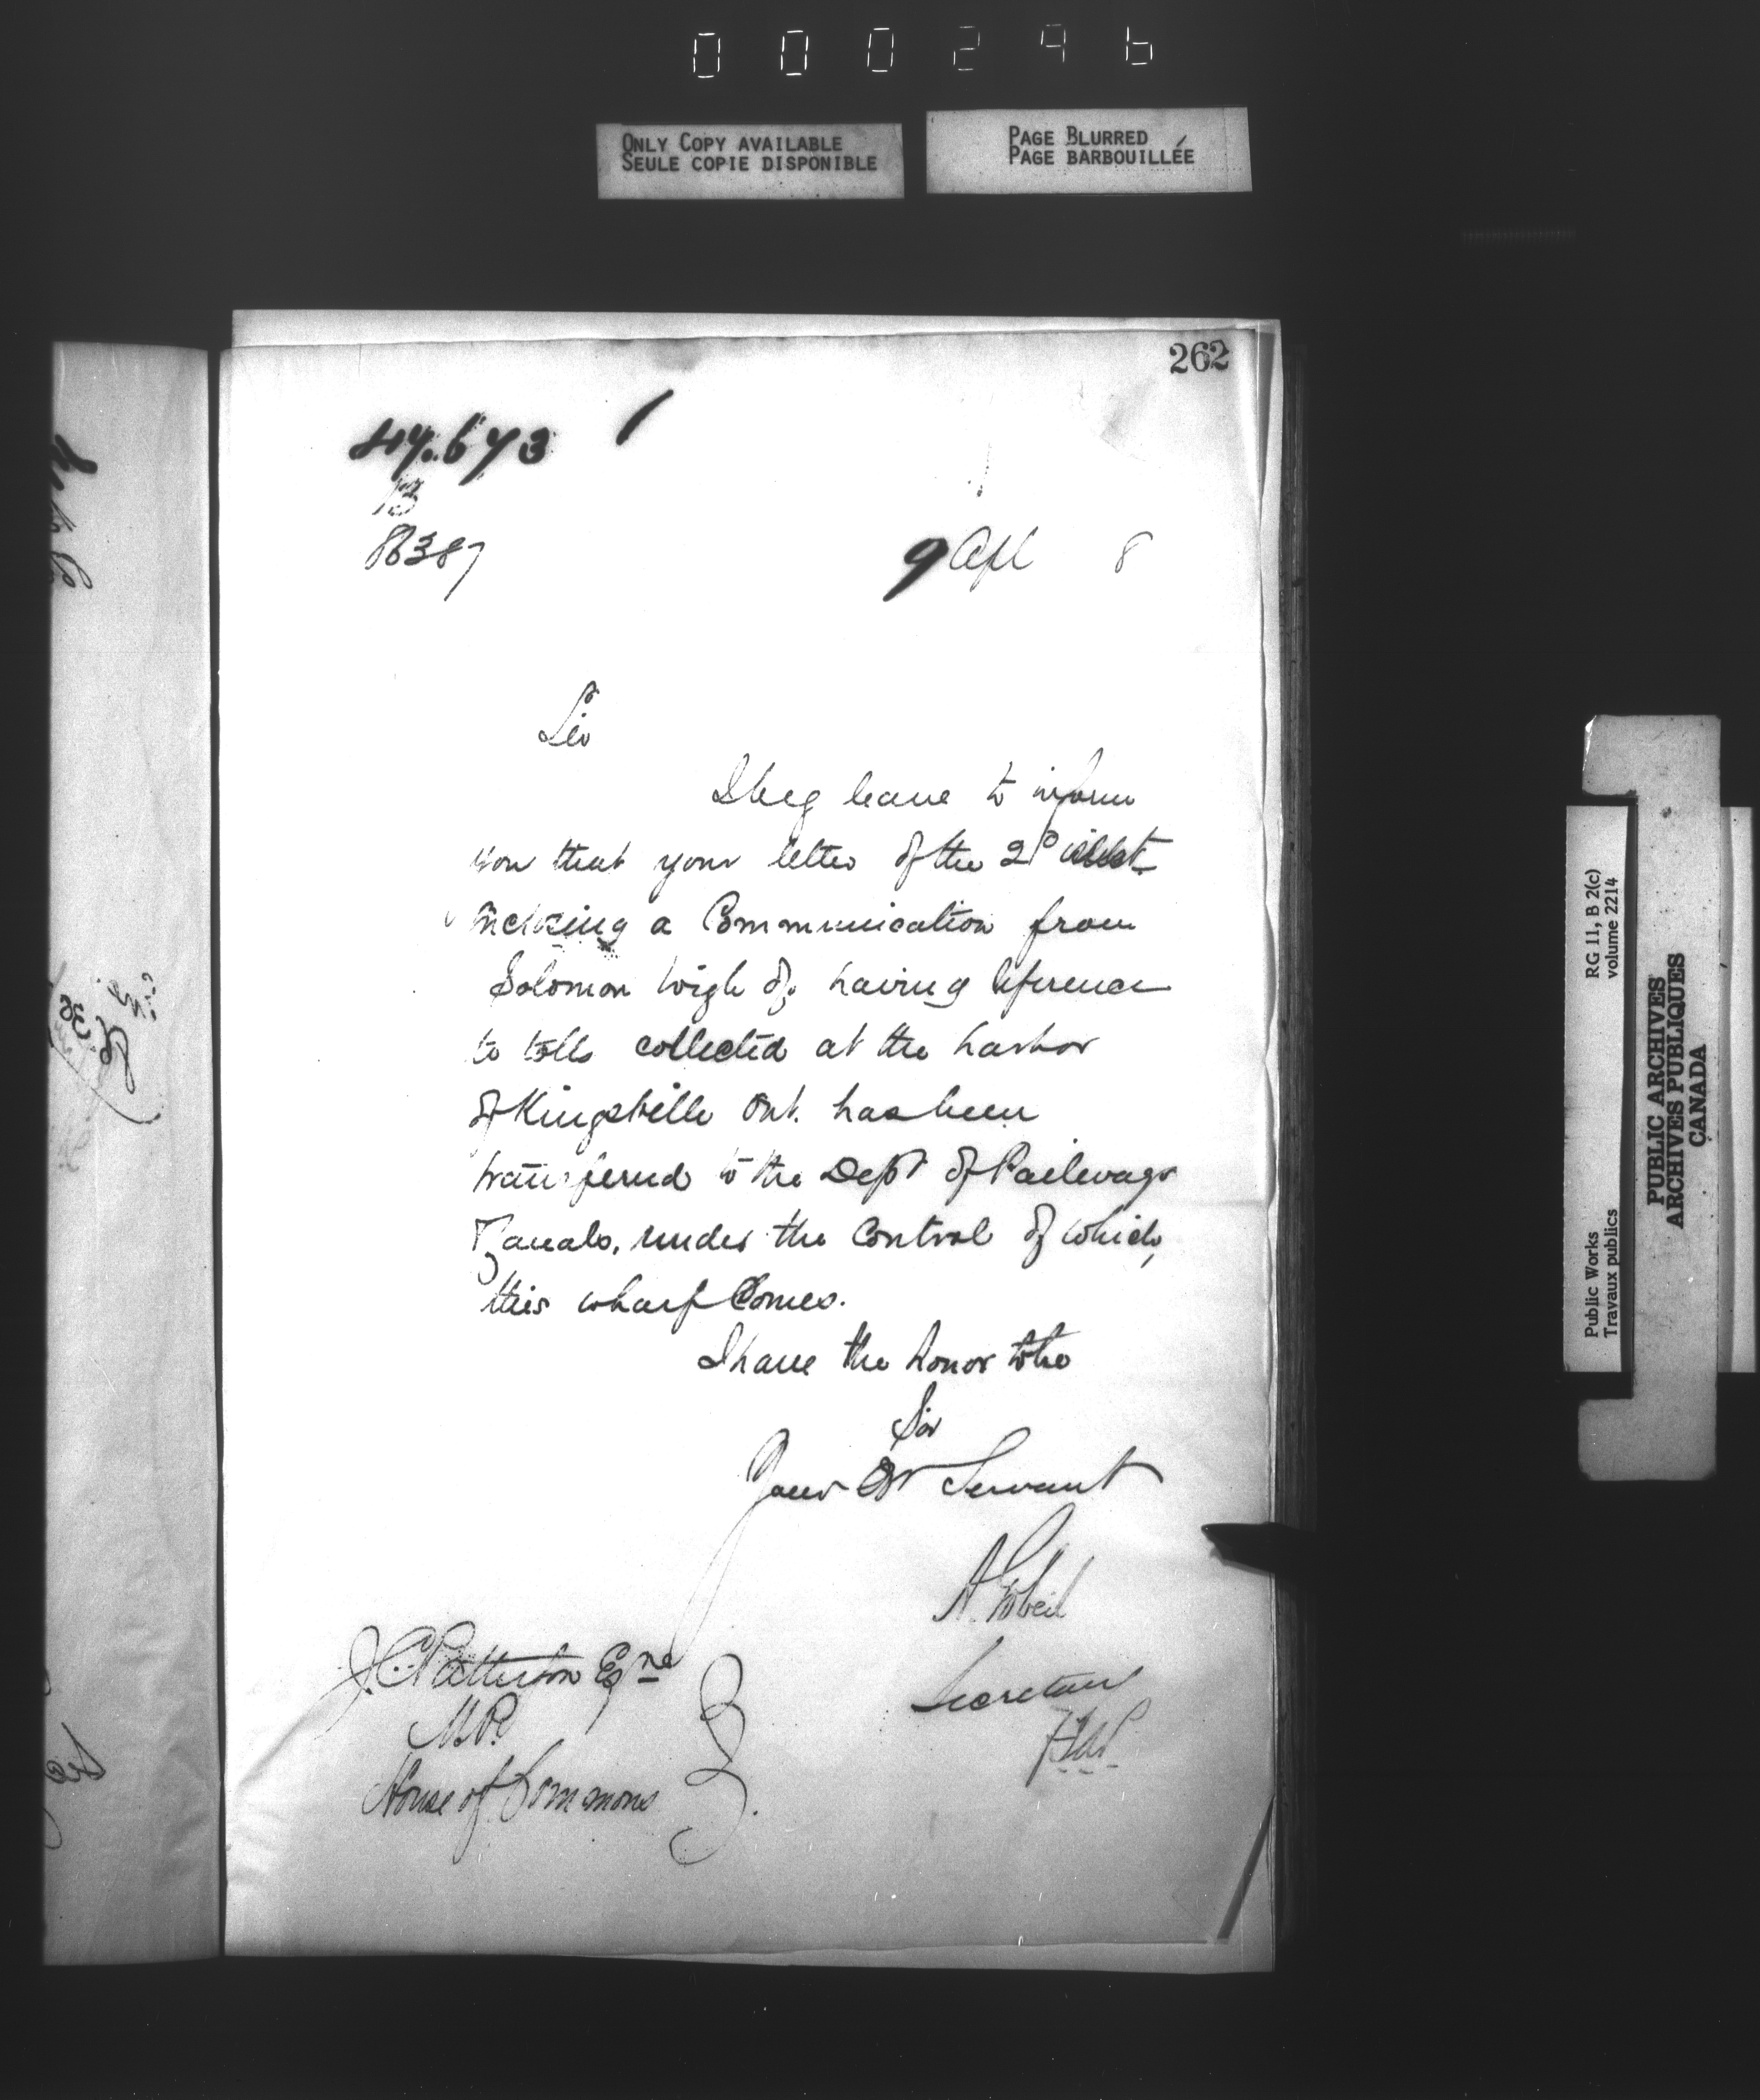 000296
ONLY COPY AVAILABLE
SEULE COPIE DISPONIBLE
PAGE BLURRED
PAGE BARBOUILLÉE
262
47.673 1
13
86387
9 Apl 8
Sir
I beg leave to inform
you that your letter of the 2d inst
inclosing a Communication from
Solomon Wigle of having reference
to tolls collected at the harbor
of Kingsville Ont. has been
transferred to the Dept of Railways
& Canals, under the Control of which,
this wharf Comes.
I have the honor to be
Sir
Your Obt Servant
A. Gobeil
Secretary
J. C. Patterson Esqre
M.P.
House of Commons
Public Works
Travaux publics
RG 11, B 2(c)
volume 2214
PUBLIC ARCHIVES
ARCHIVES PUBLIQUES
CANADA